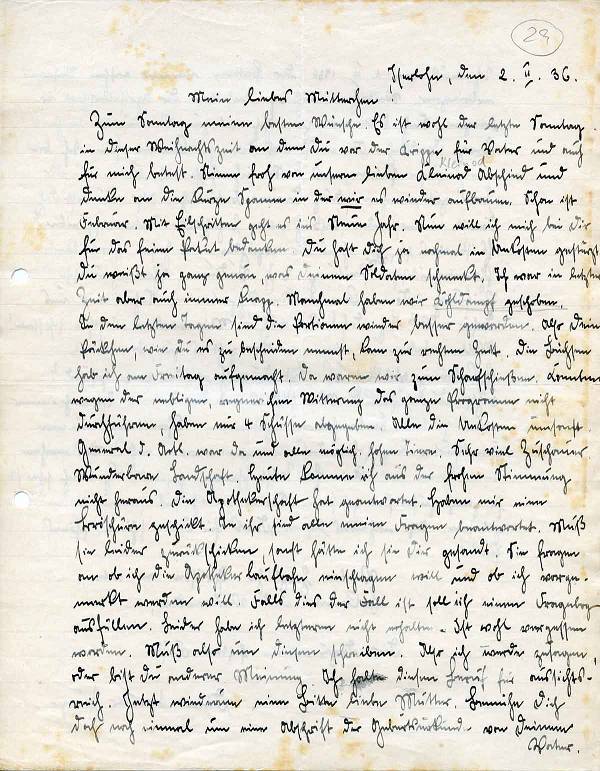 29
Iserlohn, den 2. II. 36.
Mein liebes Mütterchen!
Zum Sonntag meinen besten Wünsche. Es ist wohl der letzte Sonntag
in dieser Weihnachtszeit an dem du vor der Krippe für Vater und auch
für mich betest. Nimm froh von unserm lieben Kleinod Abschied und
Kleinod
denke an die kurze Spanne in der wir es wieder aufbauen. Schon ist
Februar. Mit Eilschritten geht es ins Neue Jahr. Nun will ich mich bei Dir
für das feine Paket bedanken. Du hast Dich ja nochmal in Unkosten gestürzt
Du weißt ja ganz genau, was Deinem Soldaten schmeckt. Ich war in letzter
Zeit aber auch immer knapp. Manchmal haben wir Kohldampf geschoben.
In den letzten Tagen sind die Portionen wieder besser geworden. Also Dein
Päckchen, wie du es zu bescheiden nennst, kam zur rechten Zeit. Die Büchsen
hab ich am Freitag aufgemacht. Da waren wir zum Scharfschießen. Konnten
wegen der nebligen, regnerischen Witterung das ganze Programm nicht
durchführen, haben nur 4 Schüsse abgegeben. Alle die Unkosten umsonst.
General d. Artl. war da und alle möglich. hohen Tiere. Sehr viel Zuschauer
Wunderbare Landschaft. Heute komme ich aus der frohen Stimmung
nicht heraus. Die Apothekerschaft hat geantwortet. Haben mir eine
Broschüre zugeschickt. In ihr sind alle meine Fragen beantwortet. Muß
sie leider zurückschicken, sonst hätte ich sie Dir gesandt. Sie fragen
an ob ich die Apothekerlaufbahn einschlagen will und ob ich vorge-
merkt werden will. Falls dies der Fall ist soll ich einen Fragebog
ausfüllen. Leider habe ich letzteren nicht erhalten. Ist wohl vergessen
worden. Muß also um diesen schreiben. Also ich werde zusagen,
oder bist Du anderer Meinung. Ich halte diesen Beruf für aussichts-
reich. Jetzt wiederum eine Bitte liebe Mutter. Bemühe Dich
doch noch einmal um eine Abschrift der Geburtsurkund. von Deinem
Vater.